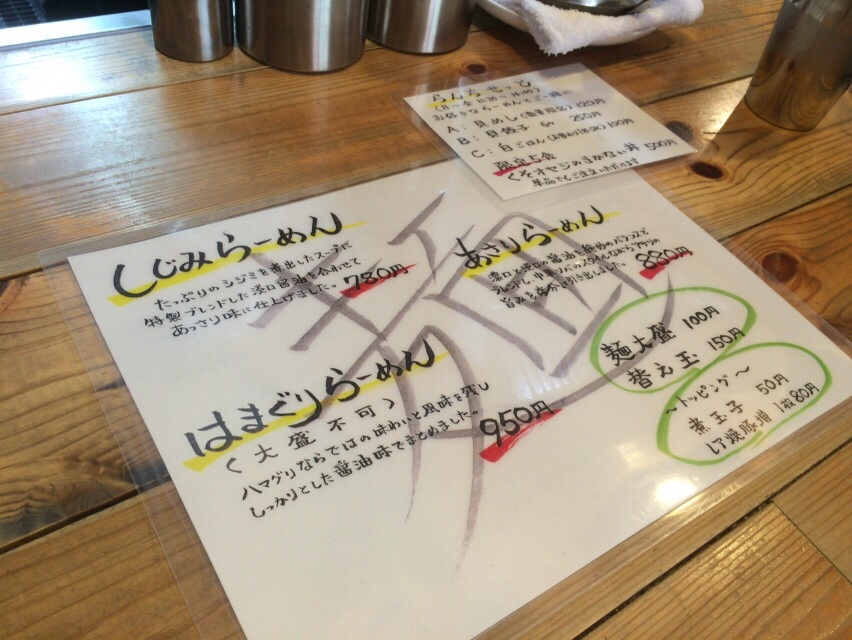 らんちせっと
(月〜金 11:30〜14:00)
お好きならーめんとご一緒に
A: 貝めし 120円
B: 貝餃子 250円
C: 白ごはん 100円
限定5食
くそオヤジのまかない丼 500円
単品でもご注文いただけます
しじみらーめん
たっぷりのシジミを煮出したスープに
特製ブレンドした淡口醤油を合わせて
あっさり味に仕上げました。 780円
あさりらーめん
濃口と淡口醤油を絶妙のバランスで
ブレンドし、
旨みを 引き出しました。 880円
はまぐりらーめん
(大盛不可)
ハマグリならではの味わいと風味を残し
しっかりとした醤油味でまとめました。 950円
麺大盛 100円
替え玉 150円
〜トッピング〜
煮玉子 50円
焼豚増 1枚80円